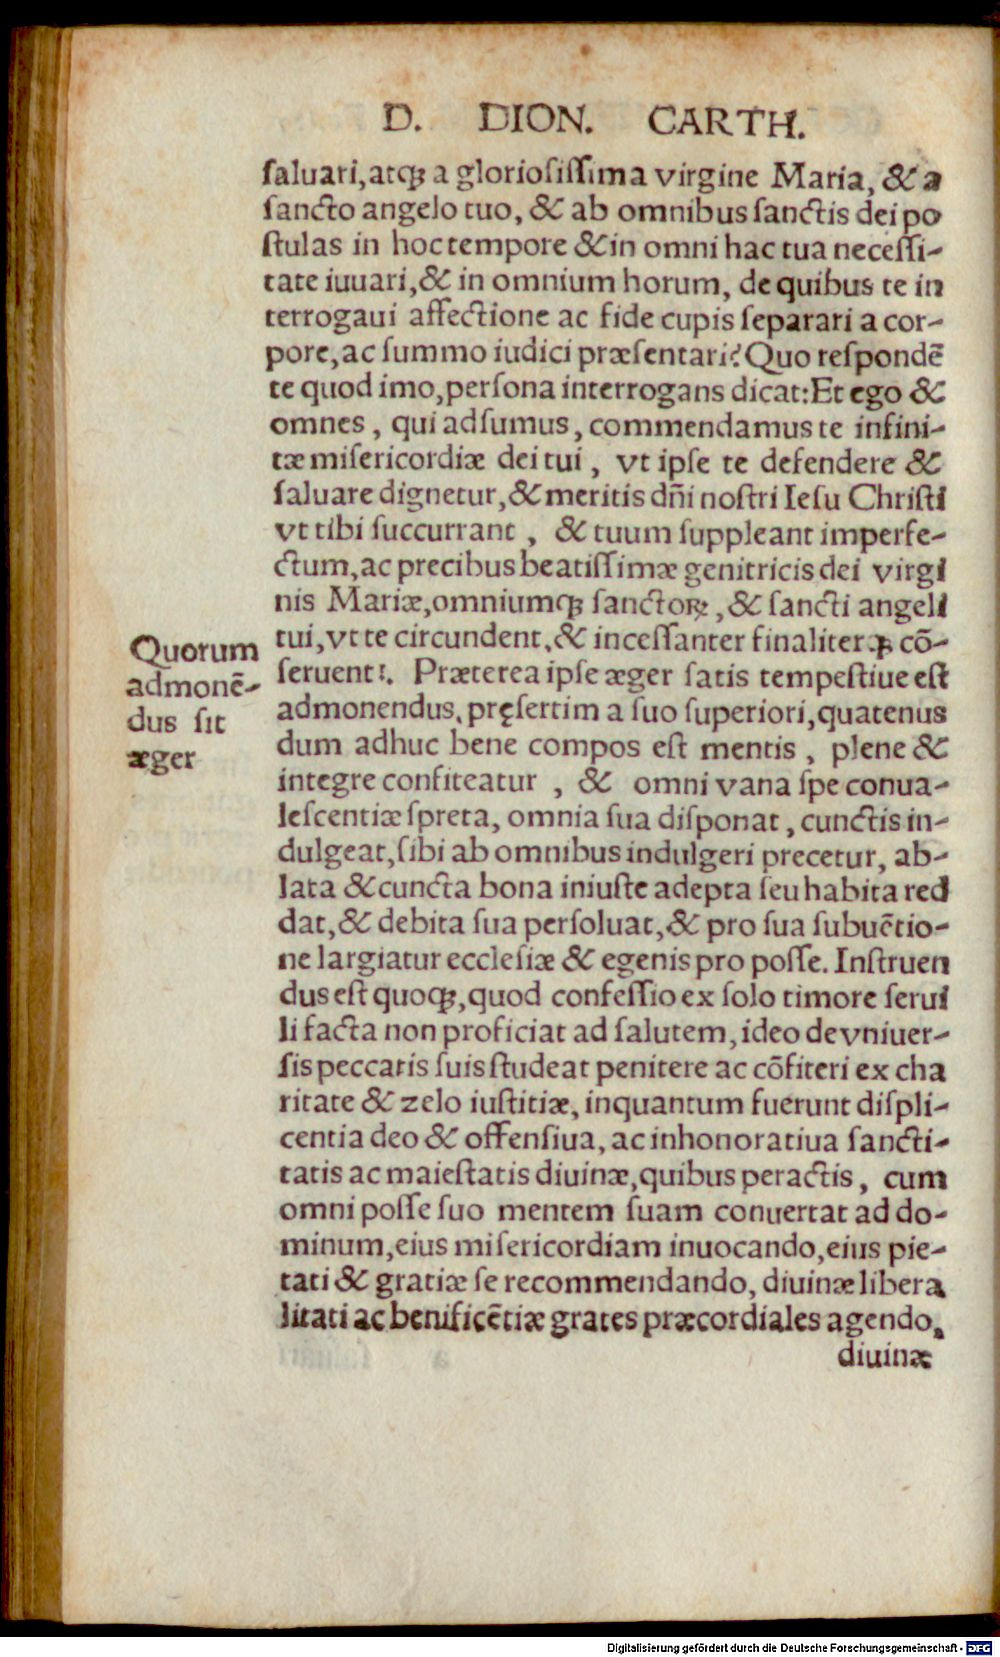 D. DION. CARTH.
ſaluari, atqꝫ a glorioſiſſima virgine Maria, & a
ſancto angelo tuo, & ab omnibus ſanctis dei po
ſtulas in hoc tempore & in omni hac tua neceſſi-
tate iuuari, & in omnium horum, de quibus te in
terrogaui affectione ac fide cupis ſeparari a cor-
pore, ac ſummo iudici præſentari? Quo reſpondē
te quod imo, perſona interrogans dicat: Et ego &
omnes, qui adſumus, commendamus te infini-
tæ miſericordiæ dei tui, vt ipſe te defendere &
ſaluare dignetur, & meritis dñi noſtri Ieſu Chriſti
vt tibi ſuccurrant, & tuum ſuppleant imperfe-
ctum, ac precibus beatiſſimæ genitricis dei virgi
nis Mariæ, omniumqꝫ ſanctoꝝ, & ſancti angeli
tui, vt te circundent, & inceſſanter finaliterqꝫ cō-
ſeruent. Præterea ipſe æger ſatis tempeſtiue eſt
Quorum
admonē-
dus ſit
æger
admonendus, pręſertim a ſuo ſuperiori, quatenus
dum adhuc bene compos eſt mentis, plene &
integre confiteatur, & omni vana ſpe conua-
leſcentiæ ſpreta, omnia ſua diſponat, cunctis in-
dulgeat, ſibi ab omnibus indulgeri precetur, ab-
lata & cuncta bona iniuſte adepta ſeu habita red
dat, & debita ſua perſoluat, & pro ſua ſubuētio-
ne largiatur eccleſiæ & egenis pro poſſe. Inſtruen
dus eſt quoqꝫ, quod confeſſio ex ſolo timore ſerui
li facta non proficiat ad ſalutem, ideo de vniuer-
ſis peccatis ſuis ſtudeat penitere ac cōfiteri ex cha
ritate & zelo iuſtitiæ, inquantum fuerunt diſpli-
centia deo & offenſiua, ac inhonoratiua ſancti-
tatis ac maieſtatis diuinæ, quibus peractis, cum
omni poſſe ſuo mentem ſuam conuertat ad do-
minum, eius miſericordiam inuocando, eius pie-
tati & gratiæ ſe recommendando, diuinæ libera
litati ac benificētiæ grates præcordiales agendo,
diuinæ
Digitalisierung gefördert durch die Deutsche Forschungsgemeinschaft - DFG